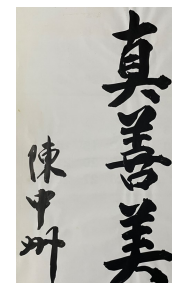 真善美
陳中州